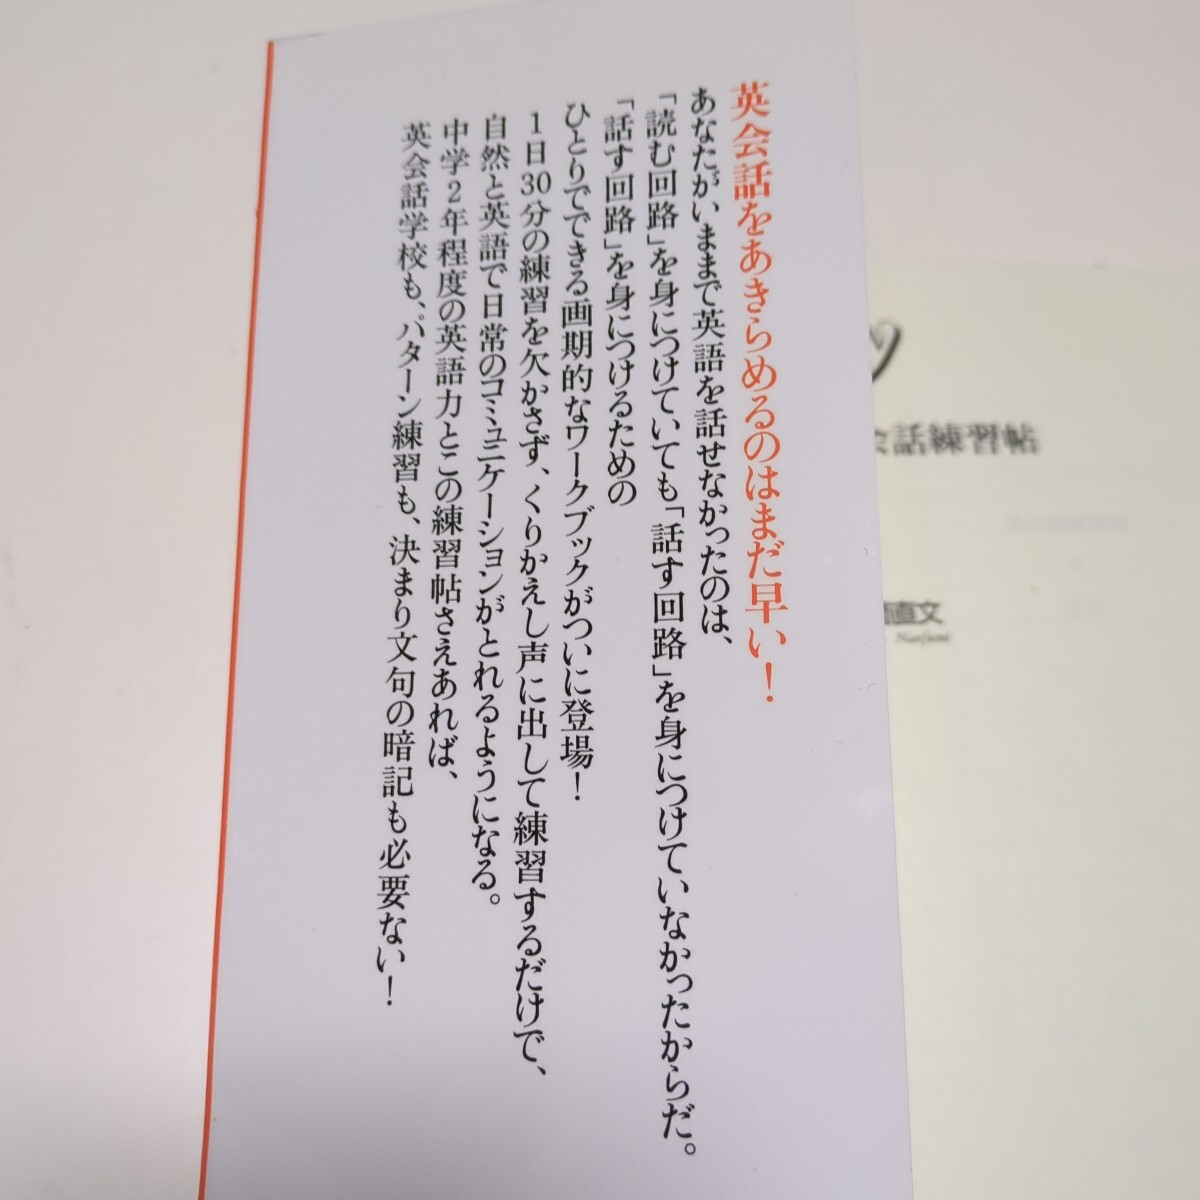 英会話をあきらめるのはまだ早い！
あなたがいままで英語を話せなかったのは、
「読む回路」を身につけていても「話す回路」を身につけていなかったからだ。
「話す回路」を身につけるための
ひとりでできる画期的なワークブックがついに登場！
1日30分の練習を欠かさず、くりかえし声に出して練習するだけで、
自然と英語で日常のコミュニケーションがとれるようになる。
中学2年程度の英語力とこの練習帖さえあれば、
英会話学校も、パターン練習も、決まり文句の暗記も必要ない！
会話練習帖
直文